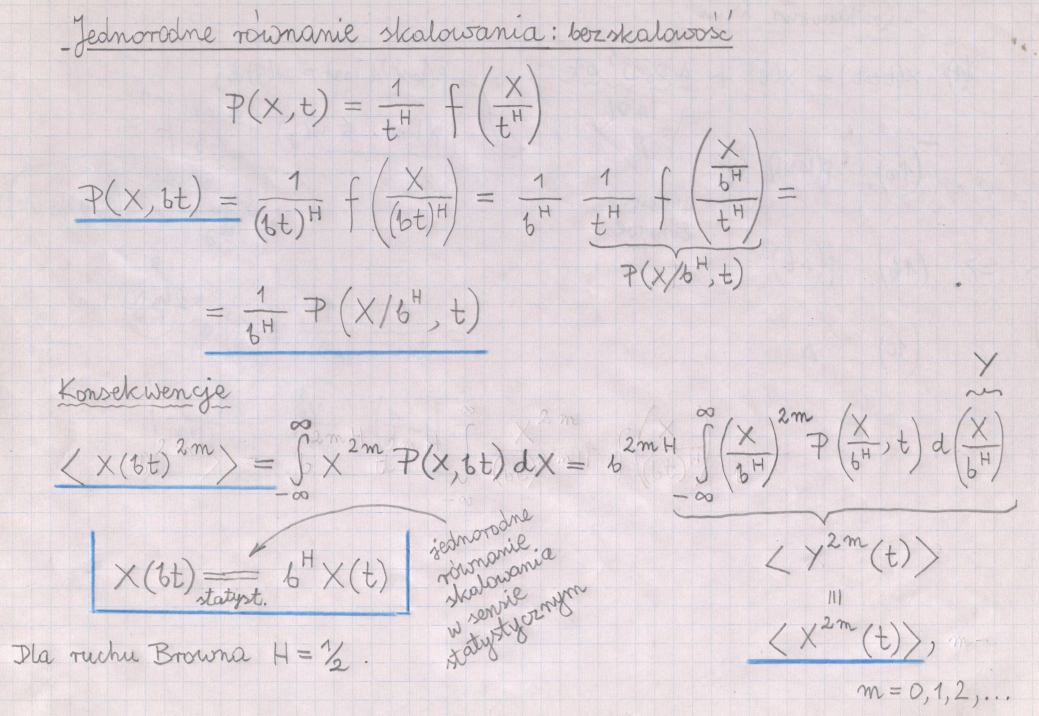 - Jednorodne równanie skalowania: bezskalowość
P(X,t) = 1/t^H f(X/t^H)
P(X,bt) = 1/(bt)^H f(X/(bt)^H) = 1/b^H 1/t^H f((X/b^H)/t^H) =
P(X/b^H, t)
= 1/b^H P(X/b^H, t)
Konsekwencje
Y
<X(bt)^2m> = ∫_{-∞}^{∞} X^2m P(X,bt) dX = b^2mH ∫_{-∞}^{∞} (X/b^H)^2m P(X/b^H, t) d(X/b^H)
<Y^2m(t)>
≡
<X^2m(t)>,
m = 0,1,2,...
X(bt) = b^H X(t)
statyst.
jednorodne
równanie
skalowania
w sensie
statystycznym
Dla ruchu Browna H = 1/2.